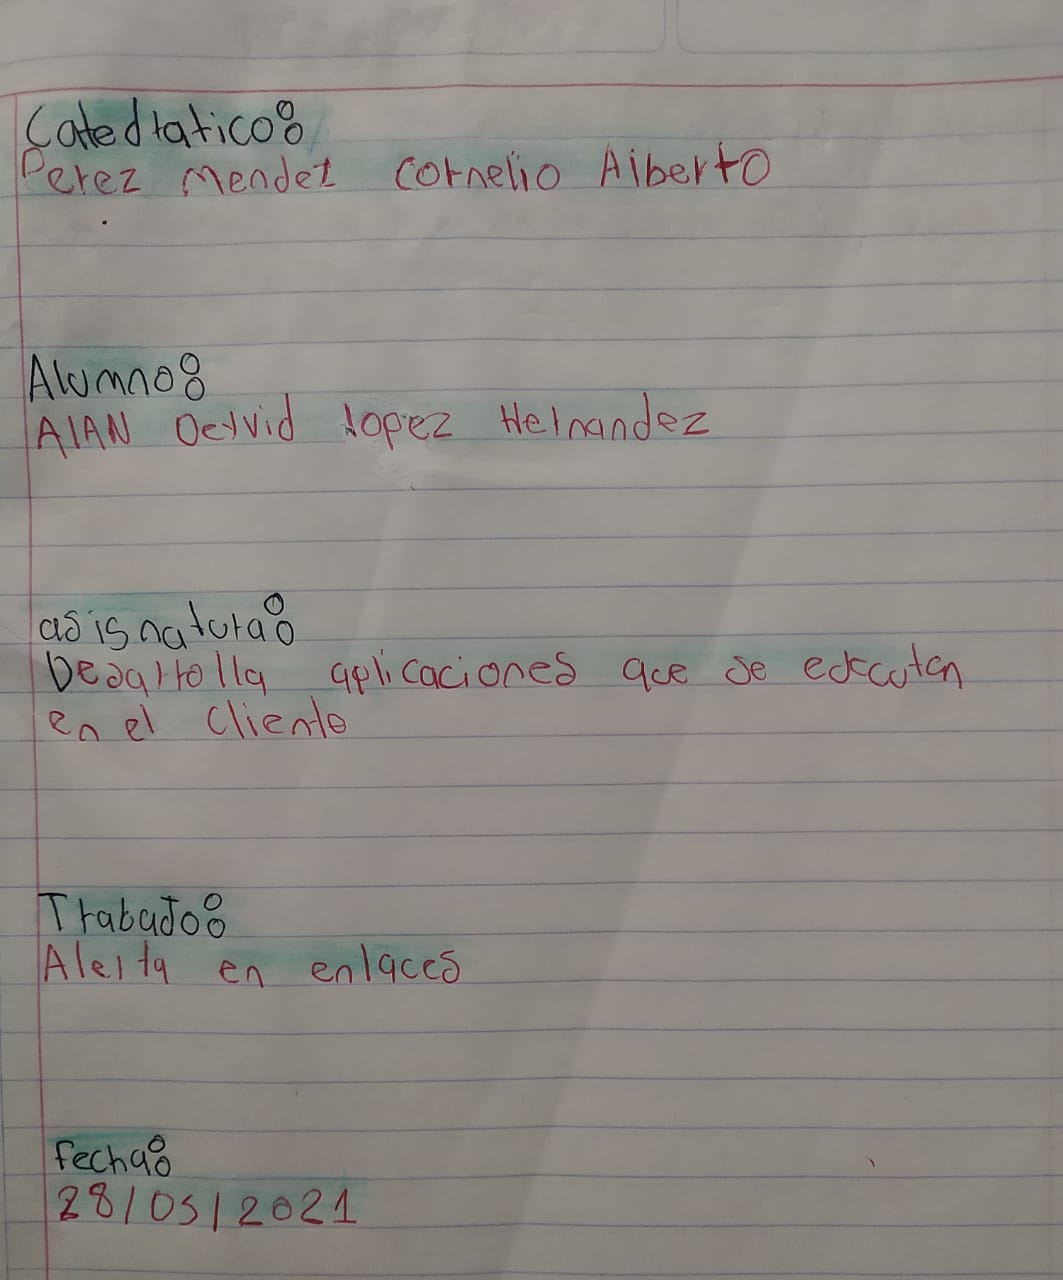 Catedratico:
Perez Mendez Cornelio Alberto
Alumno:
AlAN Deyvid lopez Hernandez
asisnatura:
Desarrolla aplicaciones que se ejecutan
en el cliente
Trabajo:
Alerta en enlaces
fecha:
28/05/2021